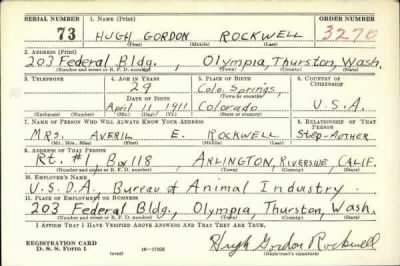 SERIAL NUMBER 1. NAME (Print) ORDER NUMBER
73 HUGH GORDON ROCKWELL 3270
(First) (Middle) (Last)
2. ADDRESS (Print)
203 Federal Bldg., Olympia, Thurston, Wash.
(Number and street or R. F. D. number) (Town) (County) (State)
3. TELEPHONE 4. AGE IN YEARS 5. PLACE OF BIRTH 6. COUNTRY OF CITIZENSHIP
29 Colo. Springs,
DATE OF BIRTH (Town or county)
April 11 1911 Colorado U.S.A.
(Mo.) (Day) (Yr.) (State or country)
7. NAME OF PERSON WHO WILL ALWAYS KNOW YOUR ADDRESS 8. RELATIONSHIP OF THAT PERSON
MRS. AVERIL E. ROCKWELL Step-Mother
(Mr., Mrs., Miss) (First) (Middle) (Last)
9. ADDRESS OF THAT PERSON
Rt. #1, Box 118, ARLINGTON, RIVERSIDE, CALIF.
(Number and street or R. F. D. number) (Town) (County) (State)
10. EMPLOYER'S NAME
U.S.D.A., Bureau of Animal Industry
11. PLACE OF EMPLOYMENT OR BUSINESS
203 Federal Bldg., Olympia, Thurston, Wash.
(Number and street or R. F. D. number) (Town) (County) (State)
I AFFIRM THAT I HAVE VERIFIED ABOVE ANSWERS AND THAT THEY ARE TRUE.
REGISTRATION CARD
D. S. S. Form 1 (over) Hugh Gordon Rockwell
(Registrant's signature)